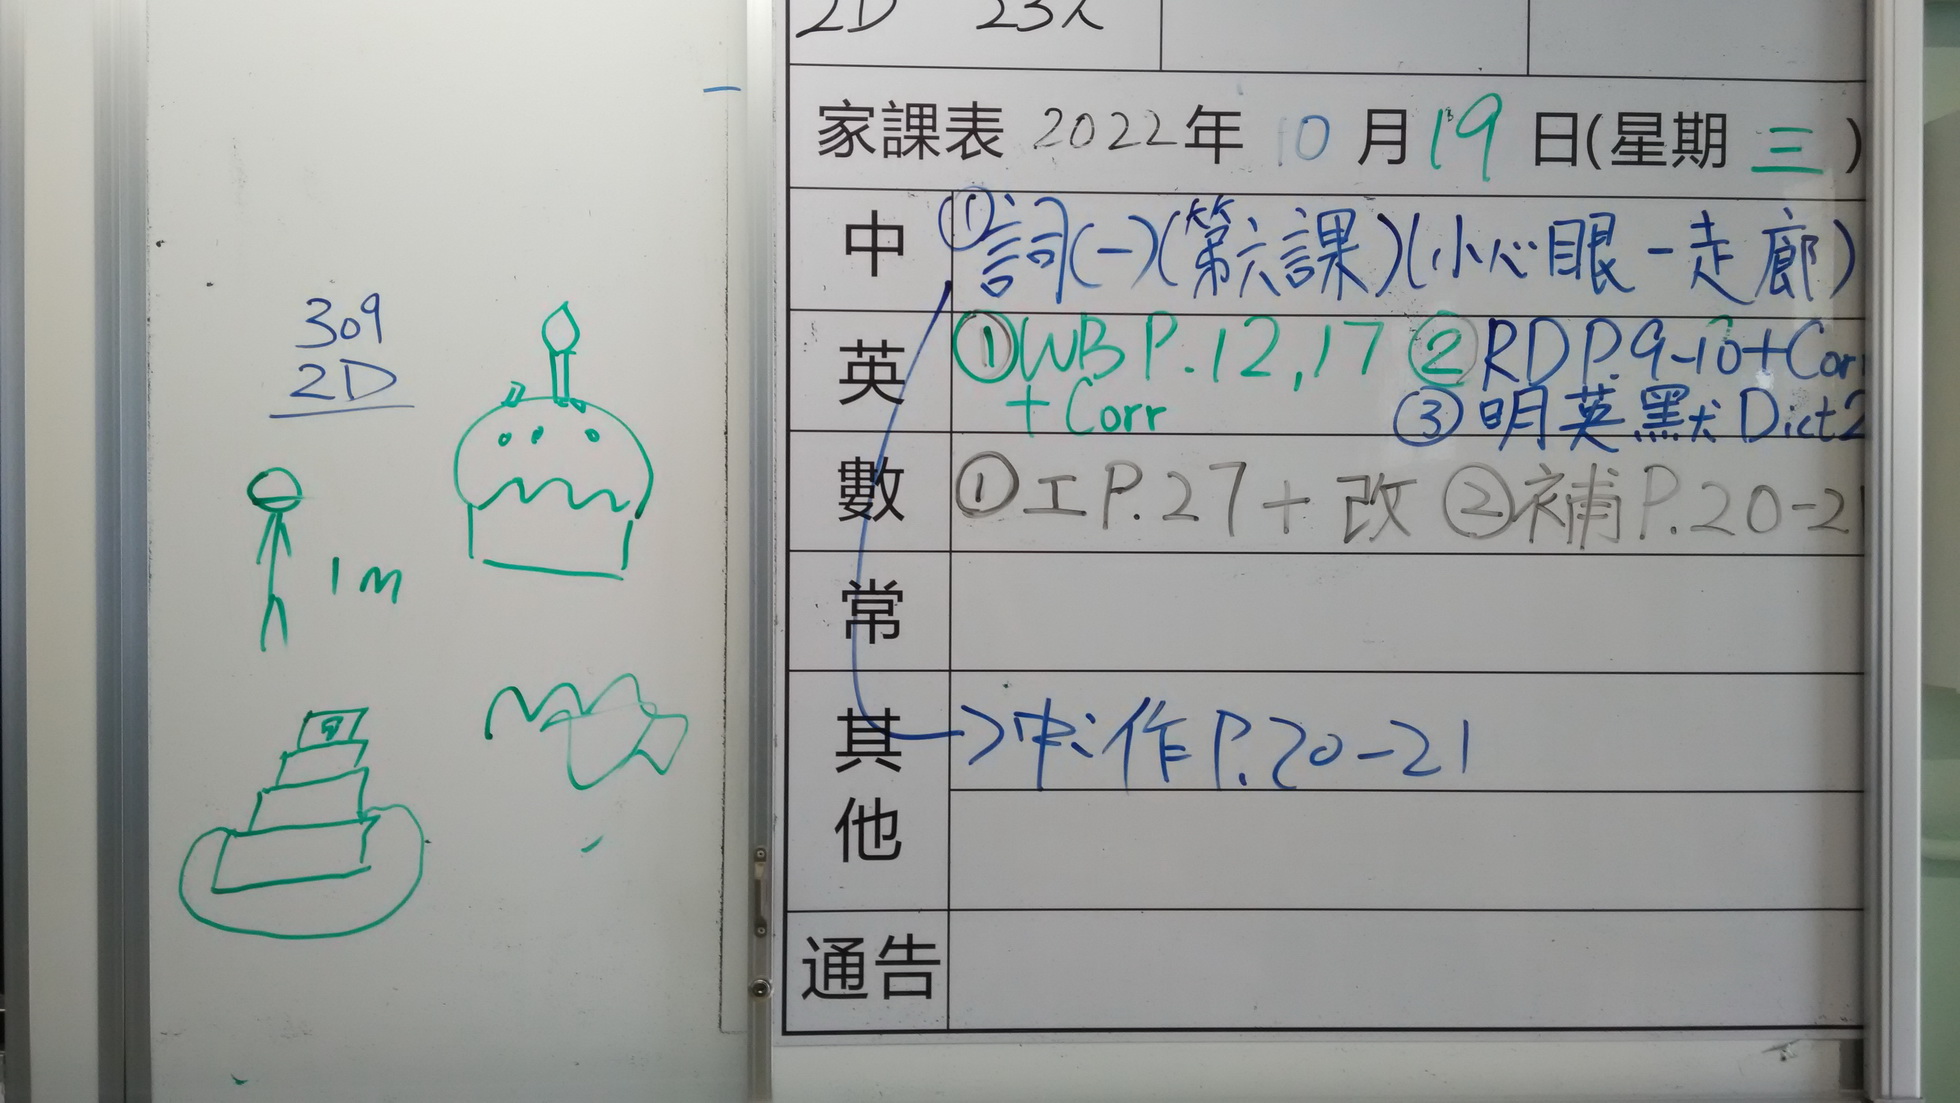 309
2D
1m
2D 23人
家課表 2022年 10 月 19 日(星期 三)
中 ①詞(一)(第六課)(小心眼-走廊)
英 ①WB P.12,17 ②RD P.9-10+Corr
+Corr ③明英默 Dict2
數 ①工P.27+改 ②補P.20-21
常
其他 →作P.20-21
通告